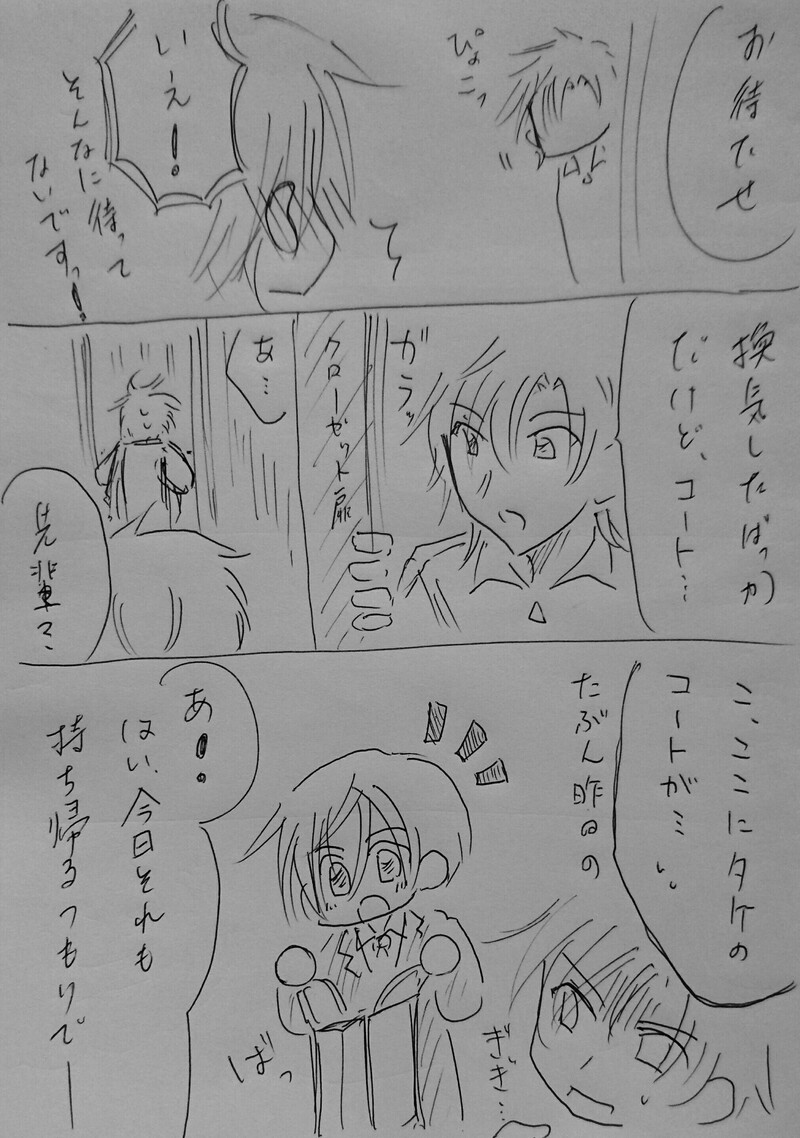 お待たせ
ぴょこっ
いえ!
そんなに待って
ないですっ!
換気したばっか
だけど、コート…
ガラッ
クローゼット扉
あ…
先輩…
こ、ここにタケの
コートが…
たぶん昨日の
ぎ、き…
ばっ
あ!
はい、今日それも
持ち帰るつもりでー